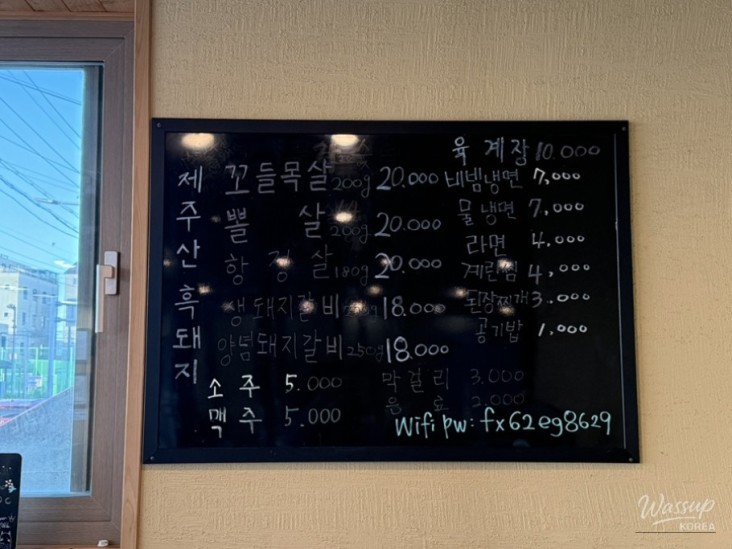 제주산흑돼지
꼬들목살 200g 20.000
뽈살 200g 20.000
항정살 180g 20.000
생돼지갈비 18.000
양념돼지갈비 250g 18.000
소주 5.000
맥주 5.000
육계장 10.000
비빔냉면 7,000
물냉면 7,000
라면 4.000
계란찜 4,000
된장찌개 3.000
공기밥 1,000
막걸리 3.000
음료 2.000
Wifi pw: fx62eg8629
Wassup
KOREA